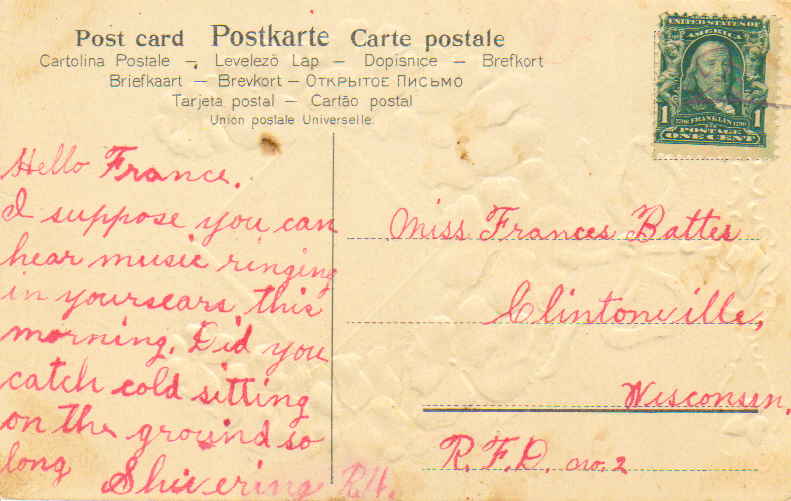 Post card Postkarte Carte postale
Cartolina Postale – Levelező Lap – Dopisnice – Brefkort
Briefkaart – Brevkort – Открытое Письмо
Tarjeta postal – Cartão postal
Union postale Universelle.
UNITED STATES OF
AMERICA
1 1
FRANKLIN
POSTAGE
ONE CENT
Hello France.
I suppose you can
hear music ringing
in yoursears this
morning. Did you
catch cold sitting
on the ground so
long
Shivering R.H.
Miss Frances Batter
Clintonville,
Wisconsin,
R.F.D. no. 2